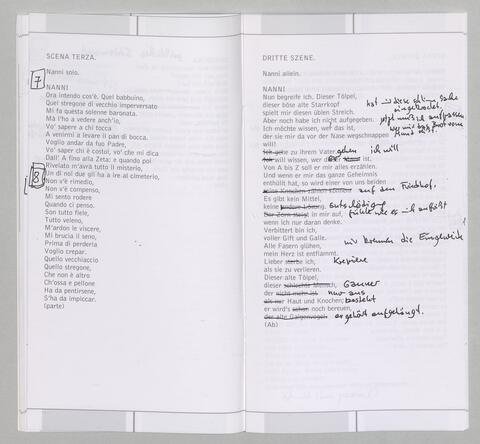 SCENA TERZA.
7
Nanni solo.
NANNI
Ora intendo cos'è. Quel babbuino,
Quel stregone di vecchio imperversato
Mi fa questa solenne baronata.
Mà l'ho a vedere anch'io,
Vo' sapere a chi tocca
A venirmi a levare il pan di bocca.
Voglio andar da fuo Padre,
Vo' saper chi è costui, vo' che mi dica
Dall' A fino alla Zeta: e quando poi
Rivelato m'avrà tutto il misterio,
8
Un di noi due gli ha a ire al cimeterio,
Non v'è rimedio,
Non v'è compenso,
Mi sento rodere
Quando ci penso.
Son tutto fiele,
Tutto veleno,
M'ardon le viscere,
Mi brucia il seno,
Prima di perderla
Voglio crepar.
Quello vecchiaccio
Quello stregone,
Che non è altro
Ch'ossa e pellone
Ha da pentirsene,
S'ha da impiccar.
(parte)
DRITTE SZENE.
Nanni allein.
NANNI
Nun begreife ich. Dieser Tölpel,
dieser böse alte Starrkopf
spielt mir diesen üblen Streich.
Aber noch habe ich nicht aufgegeben.
Ich möchte wissen, wer das ist,
der sie mir da vor der Nase wegschnappen
will!
Ich gehe zu ihrem Vater, gehen ich will
will wissen, wer
Von A bis Z soll er mir alles erzählen.
Und wenn er mir das ganze Geheimnis
enthüllt hat, so wird einer von uns beiden
auf den Friedhof,
Es gibt kein Mittel,
keine
Der Zorn steigt in mir auf,
wenn ich nur daran denke.
Verbittert bin ich,
voller Gift und Galle.
Alle Fasern glühen, mir brennen die Eingeweide
mein Herz ist entflammt.
Lieber sterbe ich, krepiere
als sie zu verlieren.
Dieser alte Tölpel,
dieser schlechte Mensch, Gauner
der nicht mehr ist nur aus
als nur Haut und Knochen, besteht
er wird's schon noch bereuen,
der alte Galgenvogel. er gehört aufgehängt.
(Ab)